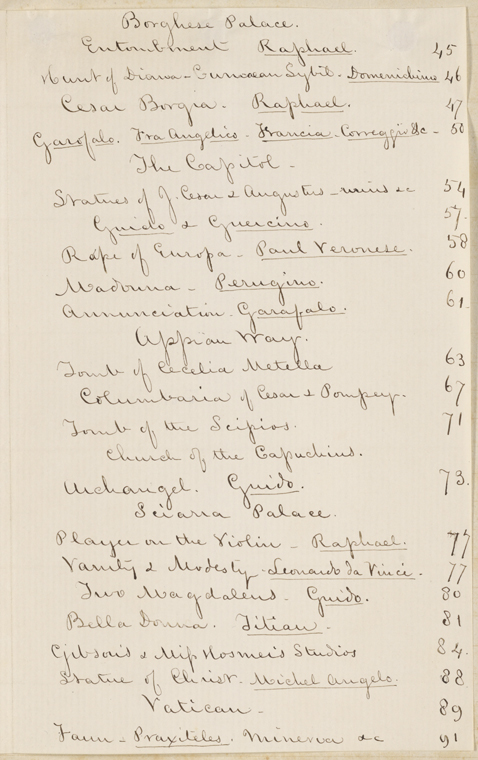 Borghese Palace.
Entombment Raphael. 45
Hunt of Diana - Cumaean Sybil - Domenichino 46
Cesar Borgia - Raphael. 47
Garofalo. Fra Angelico - Francia - Correggio &c - 50
The Capitol -
Statues of J. Cesar & Augustus - ruins &c 54
Guido & Guercino. 57.
Rape of Europa - Paul Veronese. 58
Madonna - Perugino. 60
Annunciation - Garafalo. 61.
Appian Way.
Tomb of Cecelia Metella 63
Columbaria of Cesar & Pompey. 67
Tomb of the Scipios. 71
Church of the Capuchins.
Archangel. Guido. 73.
Sciarra Palace.
Player on the Violin - Raphael. 77
Vanity & Modesty - Leonardo da Vinci. 77
Two Magdalens - Guido. 80
Bella Donna. Titian. 81
Gibson's & Miss Hosmer's Studios 84.
Statue of Christ. Michel Angelo. 88
Vatican - 89
Faun - Praxiteles. Minerva &c 91